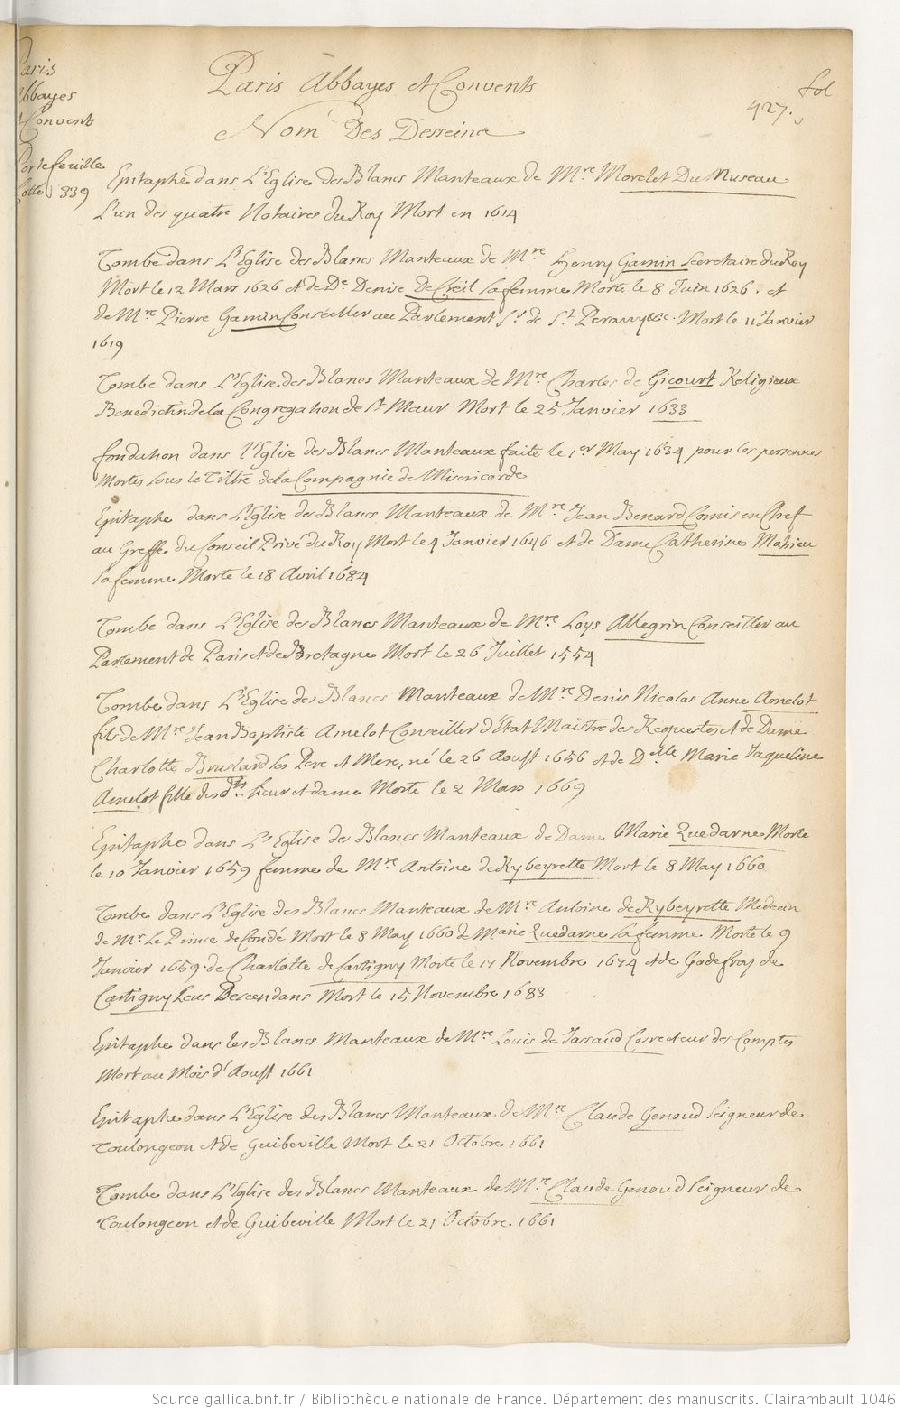 Paris Abbayes et Convents
fol
427.
Nom Des Desseins
Paris
Abbayes
et Convent
Portefeuille
Cotté 839
Epitaphe dans L'Eglise des Blancs Manteaux de Mre Morelet Du Museau
L'un des quatre Notaires du Roy Mort en 1614
Tombe dans L'Eglise des Blancs Manteaux de Mre Henry Gamin Secretaire du Roy
Mort le 12 Mars 1626 et de De Denise De Creil sa femme Morte le 8 Juin 1626. et
de Mre Pierre Gamin Conseiller au Parlement Sr de St Mort le 11 Janvier
1619
Tombe dans L'Eglise des Blancs Manteaux de Mre Charles de Gicourt Religieux
Benedictin de la Congregation de St Maur Mort le 25 Janvier 1633
fondation dans l'Eglise des Blancs Manteaux faite le 1er May 1634 pour les personnes
Mortes sous le Tiltre de la Compagnie de Misericorde
Epitaphe dans L'Eglise des Blancs Manteaux de Mre Jean Benard Comis en Chef
au Greffe du Conseil Privé du Roy Mort le 4 Janvier 1646 et de Dame Catherine Mahieu
sa femme Morte le 18 Avril 1684
Tombe dans L'Eglise des Blancs Manteaux de Mre Loys Allegrin Conseiller au
Parlement de Paris et de Bretagne Mort le 26 Juillet 1554
Tombe dans L'Eglise des Blancs Manteaux de Mre Denis Nicolas Anne Amelot
fils de Mre Jean Baptiste Amelot Conseiller d'Etat Maistre des Requestes et de Dame
Charlotte Brulard ses Pere et Mere, né le 26 Aoust 1656 et de Delle Marie Jaqueline
Amelot fille desdts Sieur et dame Morte le 2 Mars 1669
Epitaphe dans L'Eglise des Blancs Manteaux de Dame Marie Quedarne Morte
le 10 Janvier 1659 femme de Mre Antoine de Rybeyrette Mort le 8 May 1660
Tombe dans L'Eglise des Blancs Manteaux de Mre Antoine de Rybeyrette Medecin
de Mr Le Prince de Condé Mort le 8 May 1660 de Marie Quedarne sa femme Morte le 9
Janvier 1659. de Charlotte de Cartigny Morte le 17 Novembre 1674 et de Godefroy de
Cartigny Leurs Descendans Mort le 15 Novembre 1683
Epitaphe dans les Blancs Manteaux de Mre Louis de Tarraud Correcteur des Comptes
Mort au Mois d'Aoust 1661
Epitaphe dans L'Eglise des Blancs Manteaux de Mre Claude Genoud Seigneur de
Toulongeon et de Guibeville Mort le 21 Octobre 1661
Tombe dans L'Eglise des Blancs Manteaux de Mre Claude Genoud Seigneur de
Toulongeon et de Guibeville Mort le 21 Octobre. 1661
Source gallica.bnf.fr / Bibliothèque nationale de France. Département des manuscrits. Clairambault 1046